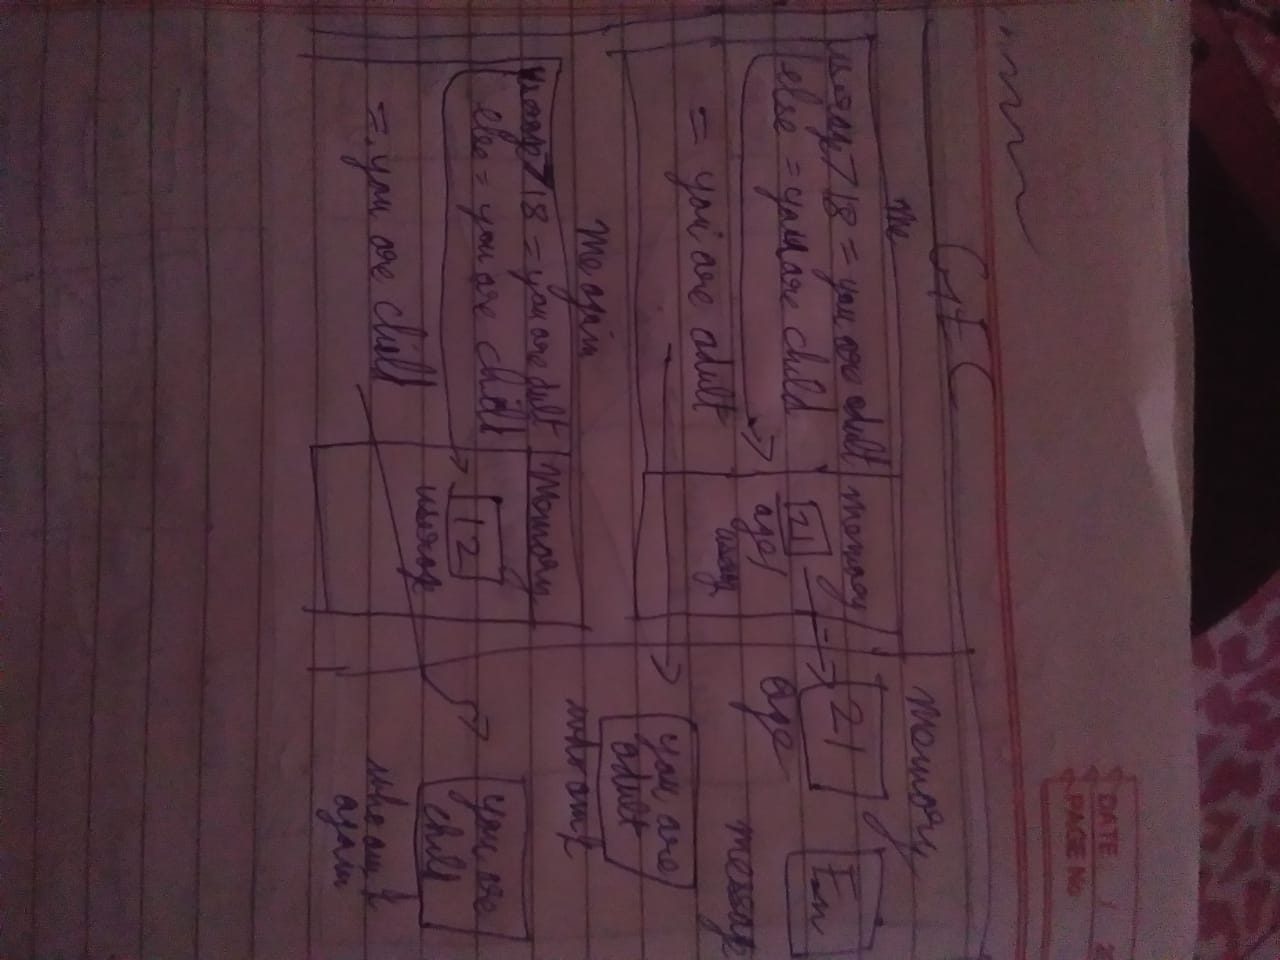 DATE /
PAGE No
GEC
Memory
Me
> 18 = you are adult
else = you are child
= you are adult
Memory
21
age/
21
age
Fn
message
you are
adult
whoami
Me again
> 18 = you are
else = you are child
= you are child
Memory
12
you are
child
whoami
again